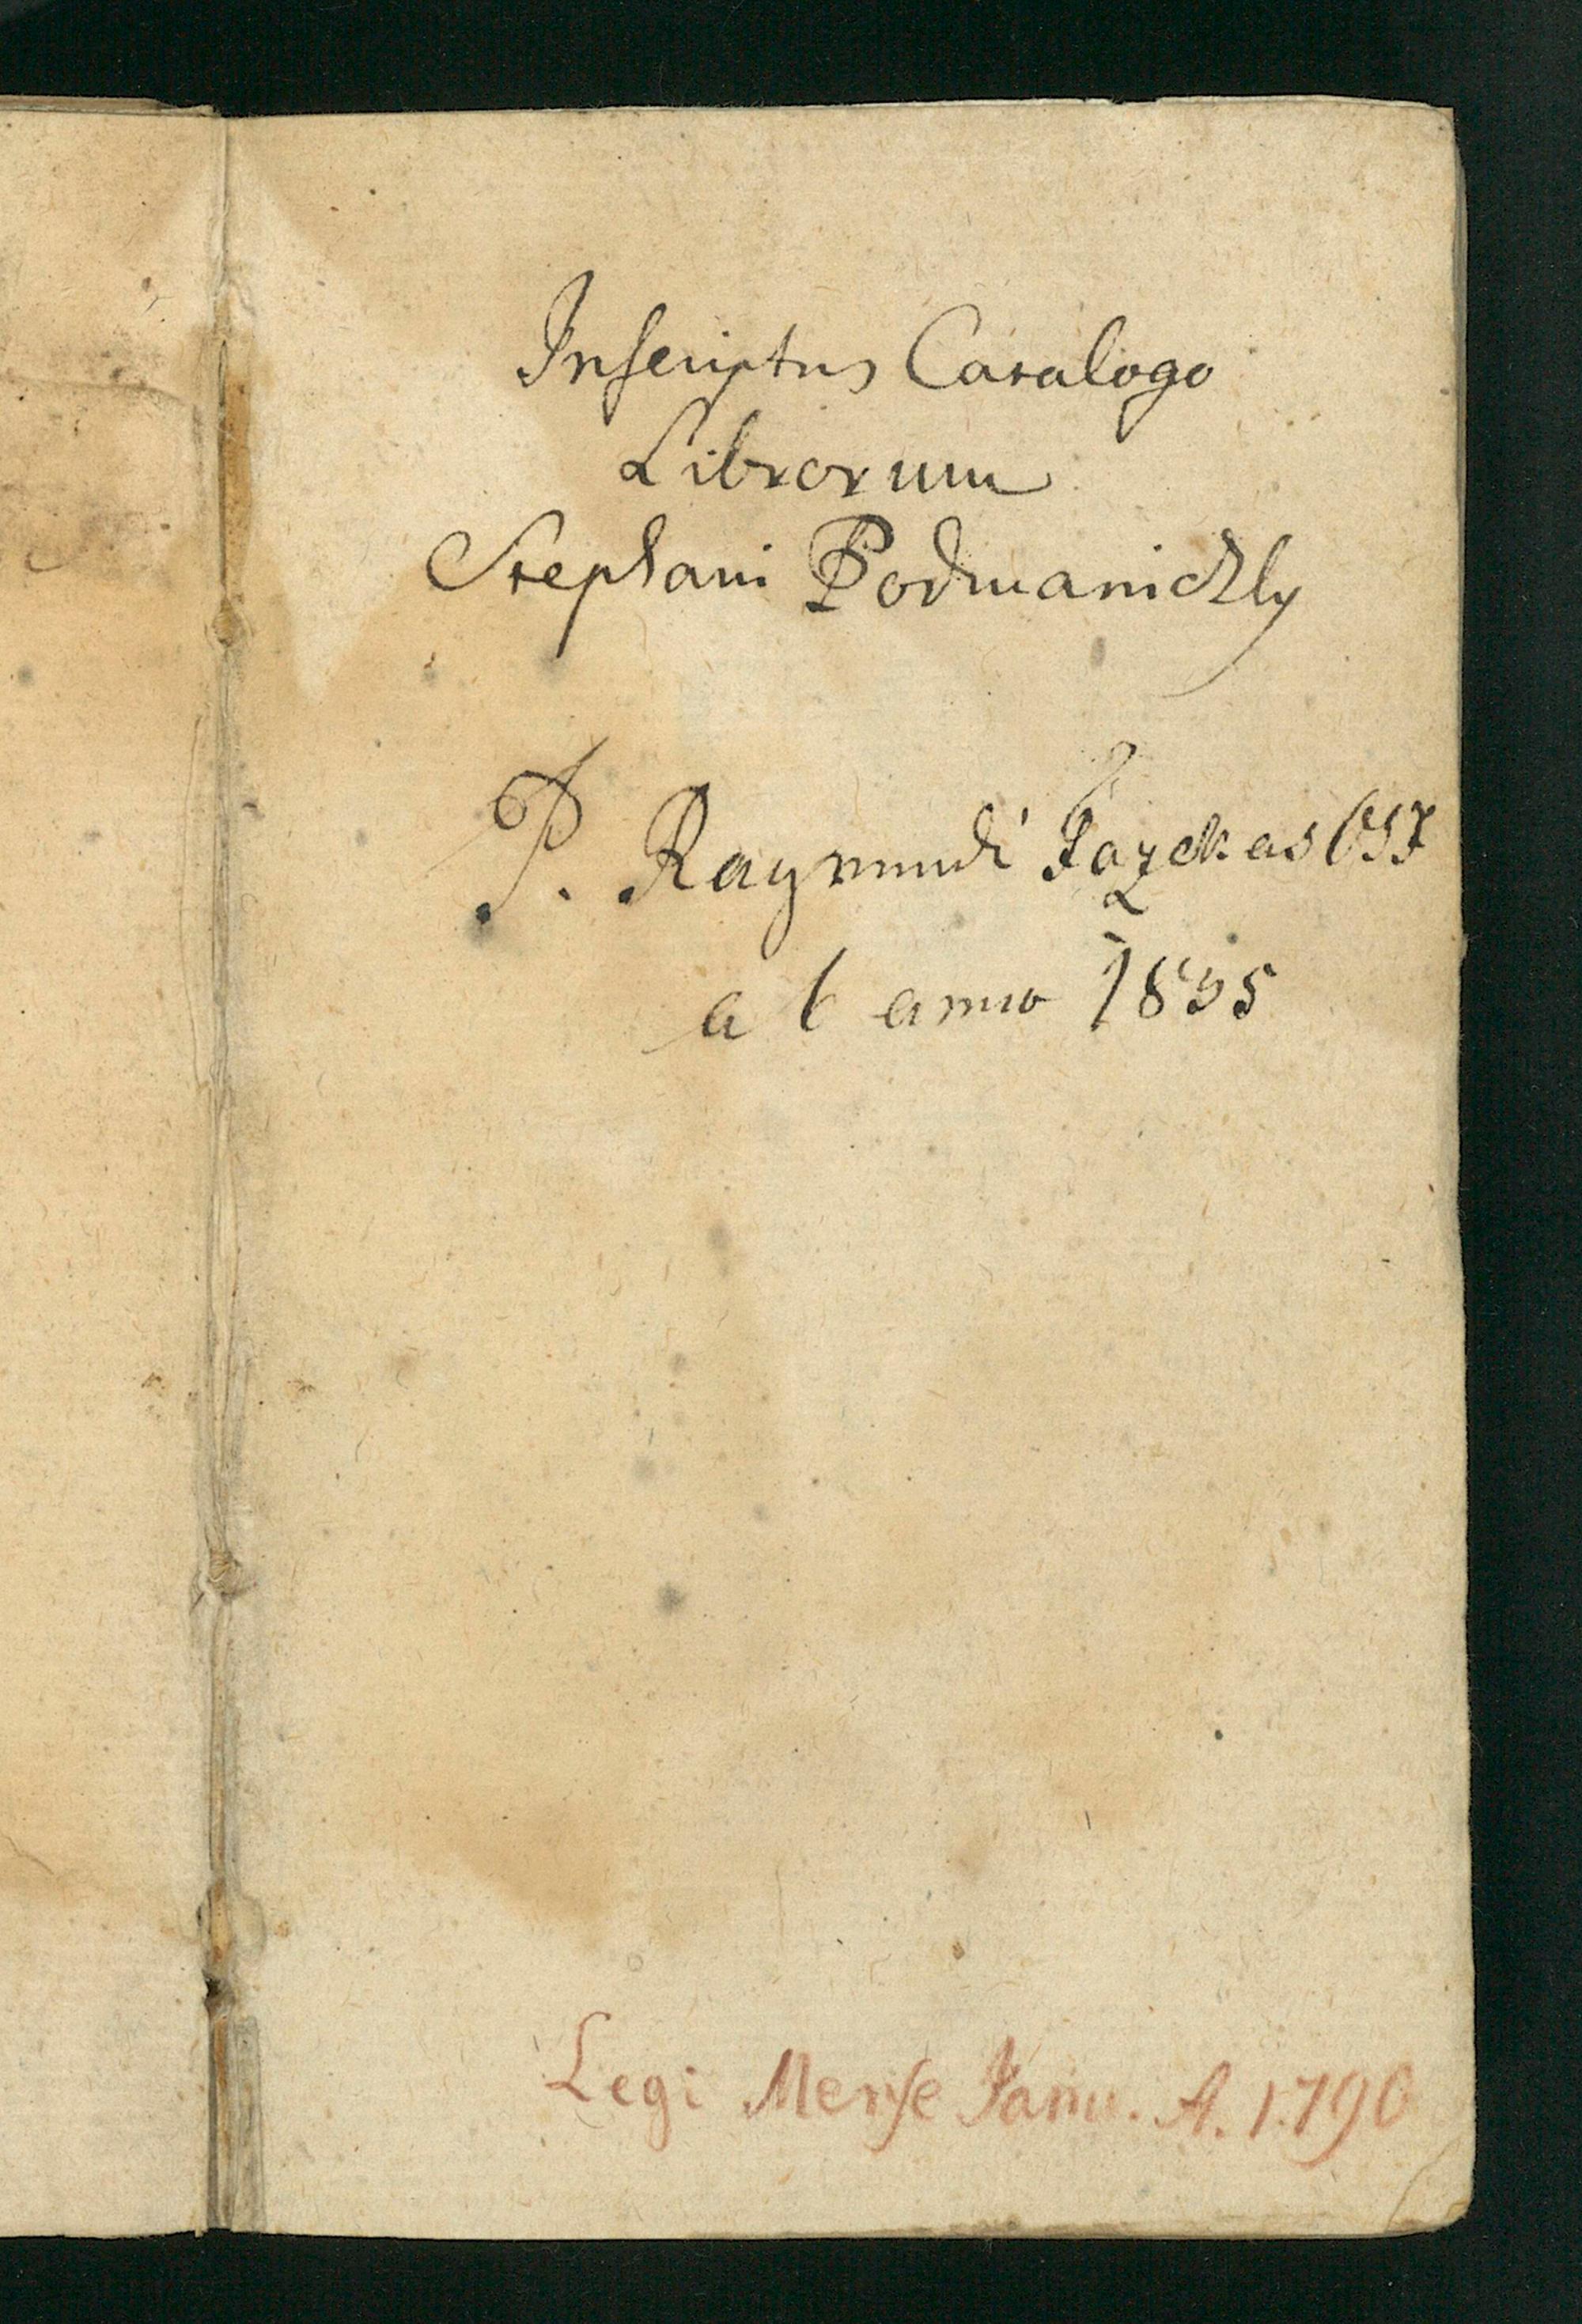 Inscriptus Catalogo
Librorum
Stephani Podmaniczky
P. Raymundi Fazekas OSF
ab anno 1835
Legi Mense Janu. A. 1790